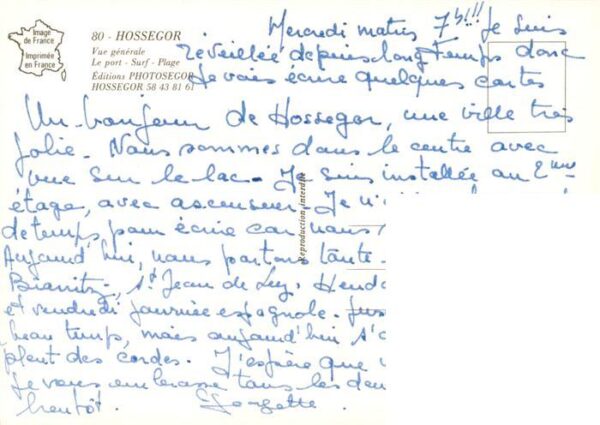 Image
de France
Imprimée
en France
80 - HOSSEGOR
Vue générale
Le port - Surf - Plage
Éditions PHOTOSEGOR
HOSSEGOR 58 43 81 61
Reproduction interdite
Mercredi matin 7h!!! Je suis
réveillée depuis longtemps donc
Je vais écrire quelques cartes
Un bonjour de Hossegor, une ville très
jolie. Nous sommes dans le centre avec
vue sur le lac. Je suis installée au 2ème
étage, avec ascenseur. Je n'
de temps pour écrire car nous
Aujourd'hui, nous partons toute
Biarritz, St Jean de Luz, Hend
et vendredi journée espagnole. Jus
beau temps, mais aujourd'hui il
pleut des cordes. J'espère que
Je vous embrasse tous les deu
bientôt. Georgette